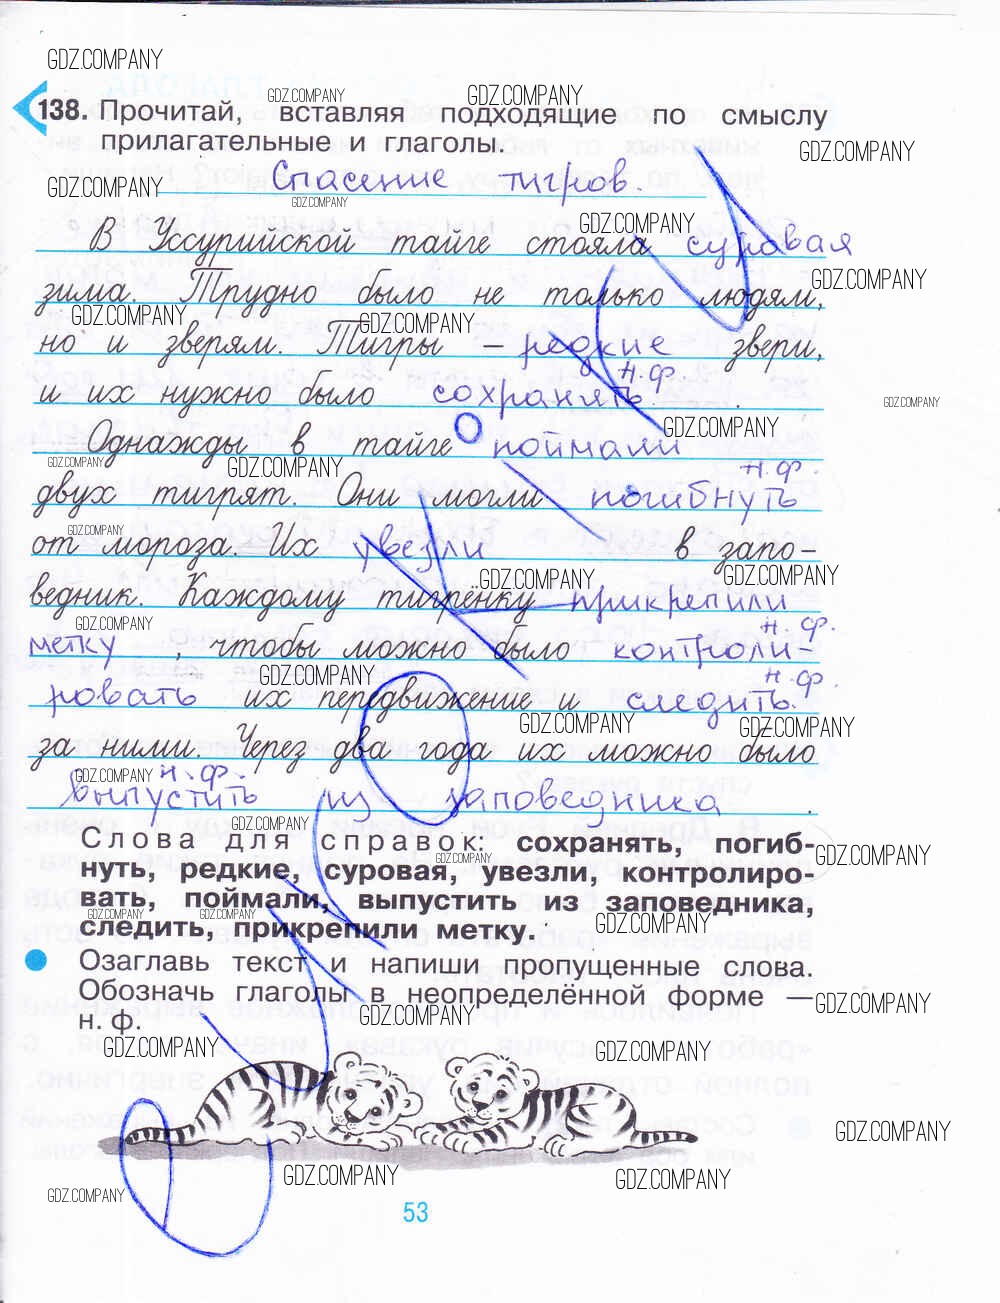 GDZ.COMPANY
138. Прочитай, вставляя подходящие по смыслу
прилагательные и глаголы.
Спасение тигров.
В Уссурийской тайге стояла суровая
зима. Трудно было не только людям,
но и зверям. Тигры – редкие звери,
н.ф.
и их нужно было сохранять.
Однажды в тайге поймали
н.ф.
двух тигрят. Они могли погибнуть
от мороза. Их увезли в запо-
ведник. Каждому тигрёнку прикрепили
н.ф.
метку, чтобы можно было контроли-
н.ф.
ровать их передвижение и следить
за ними. Через два года их можно было
н.ф.
выпустить из заповедника.
Слова для справок: сохранять, погиб-
нуть, редкие, суровая, увезли, контролиро-
вать, поймали, выпустить из заповедника,
следить, прикрепили метку.
Озаглавь текст и напиши пропущенные слова.
Обозначь глаголы в неопределённой форме —
н. ф.
53